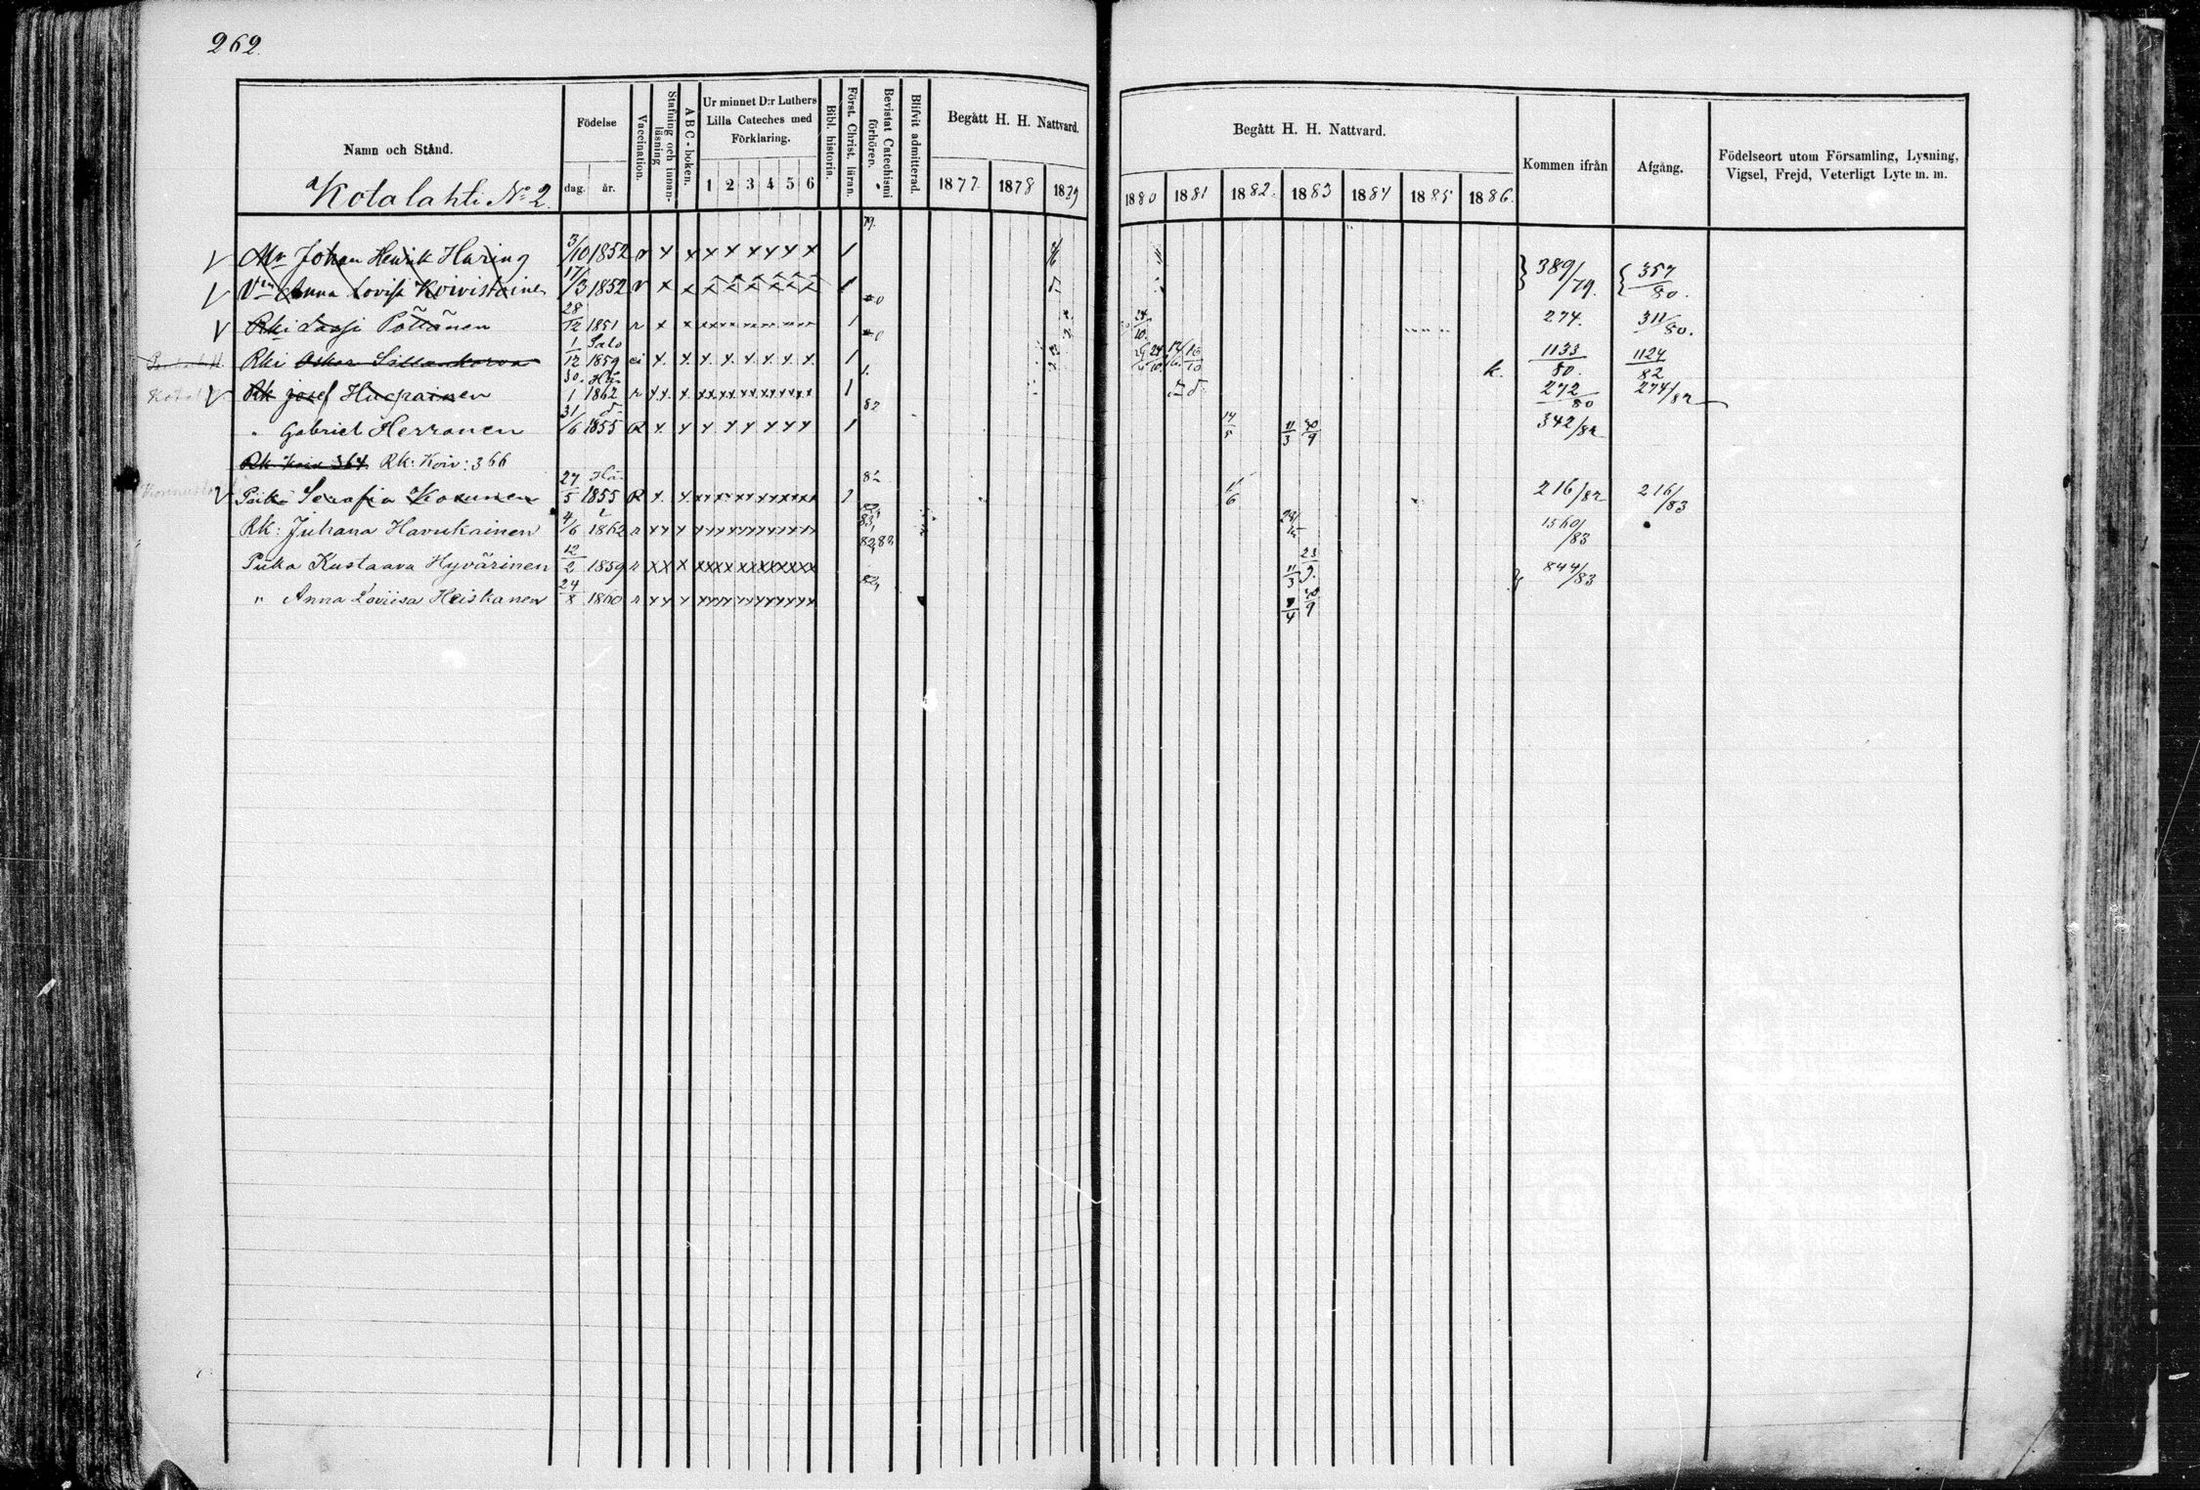 262.
Namn och Stånd.
Födelse
dag.
år.
Vaccination.
Stafning och innanläsning
A B C - boken.
Ur minnet D:r Luthers Lilla Cateches med Förklaring.
1 2 3 4 5 6
Bibl. historia.
Först. Christ. läran.
Bevistat Catechismi förhören.
Blifvit admitterad.
Begått H. H. Nattvard.
1877 1878 1879
Begått H. H. Nattvard.
1880 1881 1882. 1883 1884 1885 1886.
Kommen ifrån
Afgång.
Födelseort utom Församling, Lysning, Vigsel, Frejd, Veterligt Lyte m. m.
Kotalahti No 2.
79.
V Johan Henrik Häring 3/10 1852 v x x x x x x x x 1
V Anna Lovisa 17/3 1852 v x x 1 } 389/79. { 357/80.
V Rki Pöllänen 28/12 1851 r x x 1 24/10. 274. 311/80.
Salo
Rki Oskar 1/12 1859 ei x. x. x. x. x. x. x. x. 1 k. 1133/80. 1124/82
V Rk josef 30/1 1862 r x x x 1 272/80 274/82
82
" Gabriel Herranen 31/6 1855 R x. x x x x x x x 1 14/5 11/3 30/9 342/82
Rk: Koiv: 364 Rk: Koiv: 366
82
V Piika Serafia Kosunen 27/5 1855 R x. x. 1 216/82 216/83
Rk: Juhana Havukainen 4/6 1862 r x x x 1560/83
82,83
Piika Kustaava Hyvärinen 12/2 1859 r x x x 11/3 23/9. 844/83
" Anna Loviisa Heiskanen 24/x 1860 r x x x 30/9